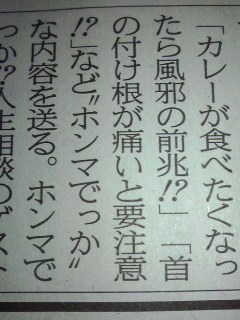 「カレーが食べたくなっ
たら風邪の前兆!?」「首
の付け根が痛いと要注意
!?」など〝ホンマでっか〟
な内容を送る。ホンマで
っか!?人生相談のゲスト